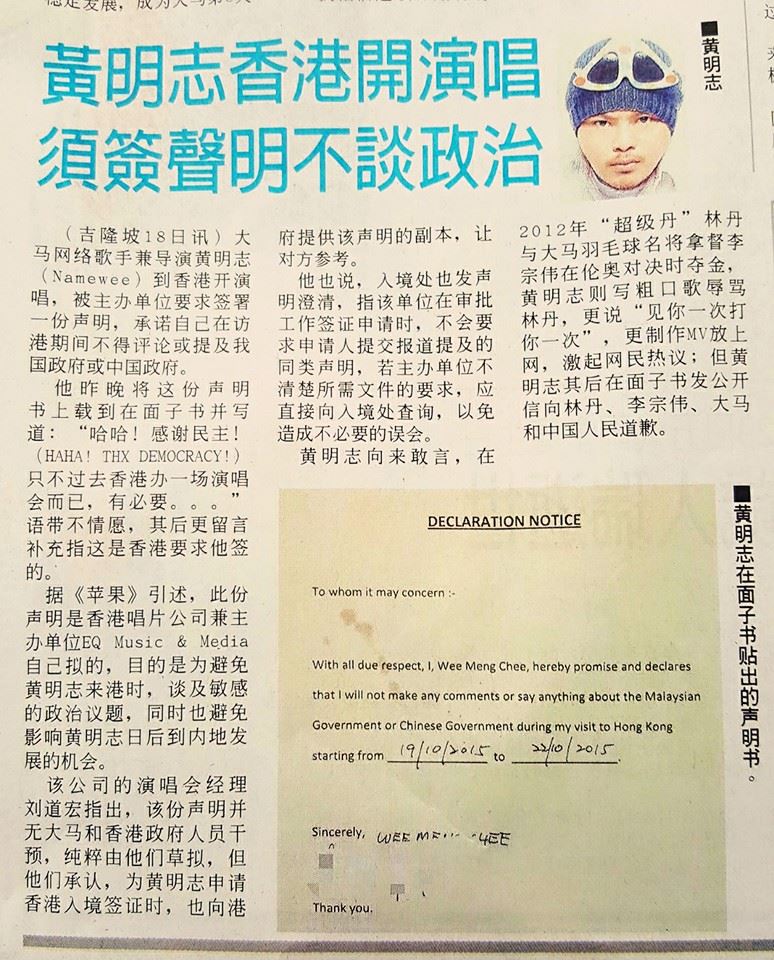 稳定发展，成为大马第
黃明志香港開演唱
須簽聲明不談政治
■黄明志
（吉隆坡18日讯）大
马网络歌手兼导演黄明志
（Namewee）到香港开演
唱，被主办单位要求签署
一份声明，承诺自己在访
港期间不得评论或提及我
国政府或中国政府。
他昨晚将这份声明
书上载到在面子书并写
道：“哈哈！感谢民主！
（HAHA! THX DEMOCRACY!）
只不过去香港办一场演唱
会而已，有必要。。。”
语带不情愿，其后更留言
补充指这是香港要求他签
的。
据《苹果》引述，此份
声明是香港唱片公司兼主
办单位EQ Music & Media
自己拟的，目的是为避免
黄明志来港时，谈及敏感
的政治议题，同时也避免
影响黄明志日后到内地发
展的机会。
该公司的演唱会经理
刘道宏指出，该份声明并
无大马和香港政府人员干
预，纯粹由他们草拟，但
他们承认，为黄明志申请
香港入境签证时，也向港
府提供该声明的副本，让
对方参考。
他也说，入境处也发声
明澄清，指该单位在审批
工作签证申请时，不会要
求申请人提交报道提及的
同类声明，若主办单位不
清楚所需文件的要求，应
直接向入境处查询，以免
造成不必要的误会。
黄明志向来敢言，在
2012年“超级丹”林丹
与大马羽毛球名将拿督李
宗伟在伦奥对决时夺金，
黄明志则写粗口歌辱骂
林丹，更说“见你一次打
你一次”，更制作MV放上
网，激起网民热议；但黄
明志其后在面子书发公开
信向林丹、李宗伟、大马
和中国人民道歉。
DECLARATION NOTICE
To whom it may concern :-
With all due respect, I, Wee Meng Chee, hereby promise and declares
that I will not make any comments or say anything about the Malaysian
Government or Chinese Government during my visit to Hong Kong
starting from 19/10/2015 to 22/10/2015.
Sincerely, WEE ME
Thank you.
■黄明志在面子书贴出的声明书。